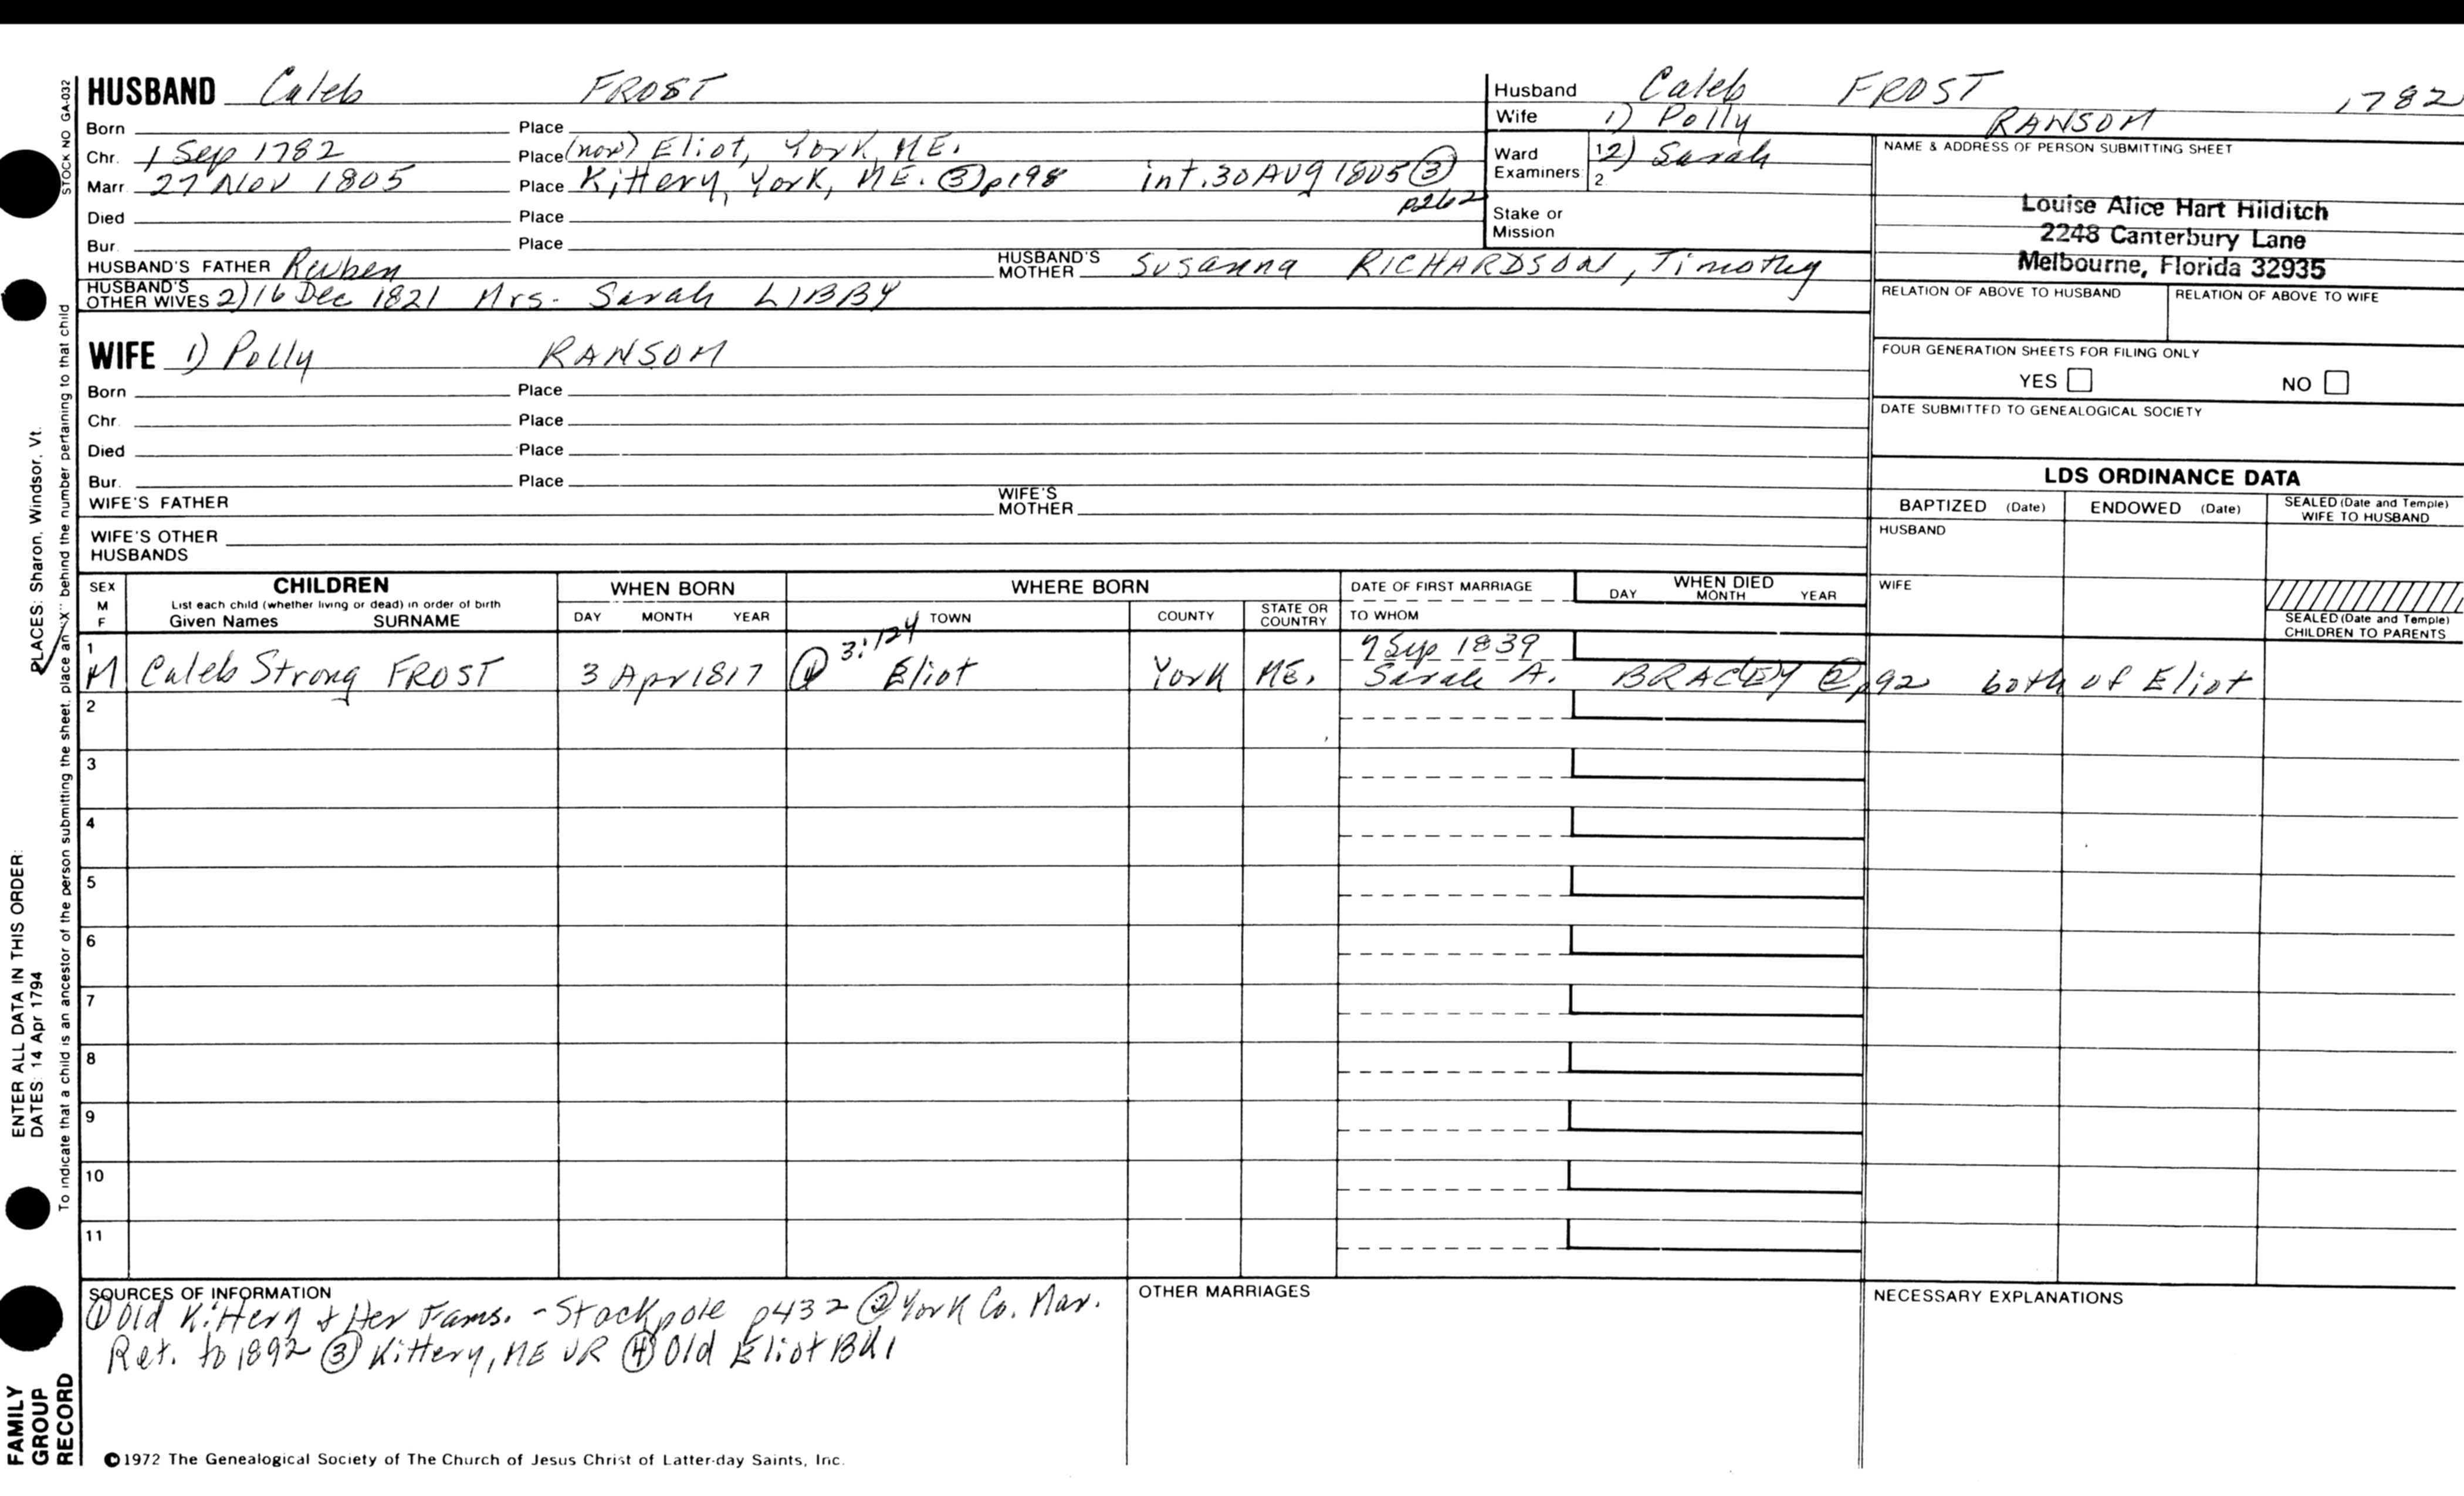 HUSBAND Caleb FROST
Born Place
Chr. 1 Sep 1782 Place (now) Eliot, York, ME.
Marr. 27 Nov 1805 Place Kittery, York, ME. ③ p198 int. 30 AUG 1805 ③ p262
Died Place
Bur. Place
HUSBAND'S FATHER Reuben HUSBAND'S MOTHER Susanna RICHARDSON, Timothy
HUSBAND'S OTHER WIVES 2) 16 Dec 1821 Mrs. Sarah LIBBY
WIFE 1) Polly RANSOM
Born Place
Chr. Place
Died Place
Bur. Place
WIFE'S FATHER WIFE'S MOTHER
WIFE'S OTHER HUSBANDS
Husband Caleb FROST 1782
Wife 1) Polly RANSOM
Ward 1 2) Sarah
Examiners: 2.
Stake or
Mission
NAME & ADDRESS OF PERSON SUBMITTING SHEET
Louise Alice Hart Hilditch
2248 Canterbury Lane
Melbourne, Florida 32935
RELATION OF ABOVE TO HUSBAND RELATION OF ABOVE TO WIFE
FOUR GENERATION SHEETS FOR FILING ONLY
YES NO
DATE SUBMITTED TO GENEALOGICAL SOCIETY
LDS ORDINANCE DATA
BAPTIZED (Date) ENDOWED (Date) SEALED (Date and Temple) WIFE TO HUSBAND
HUSBAND
WIFE
SEALED (Date and Temple) CHILDREN TO PARENTS
SEX M F CHILDREN WHEN BORN WHERE BORN DATE OF FIRST MARRIAGE WHEN DIED
List each child (whether living or dead) in order of birth
Given Names SURNAME DAY MONTH YEAR TOWN COUNTY STATE OR COUNTRY TO WHOM DAY MONTH YEAR
1 3:124 9 Sep 1839
M Caleb Strong FROST 3 Apr 1817 ④ Eliot York ME. Sarah A. BRACKEY ② p92 both of Eliot
2
3
4
5
6
7
8
9
10
11
SOURCES OF INFORMATION
① Old Kittery & Her Fams. - Stackpole p432 ② York Co. Mar.
Ret. to 1892 ③ Kittery, ME VR ④ Old Eliot Bk 1
OTHER MARRIAGES
NECESSARY EXPLANATIONS
©1972 The Genealogical Society of The Church of Jesus Christ of Latter-day Saints, Inc.
STOCK NO GA-032
To indicate that a child is an ancestor of the person submitting the sheet, place an "X" behind the number pertaining to that child
PLACES: Sharon, Windsor, Vt.
ENTER ALL DATA IN THIS ORDER:
DATES: 14 Apr 1794
FAMILY
GROUP
RECORD